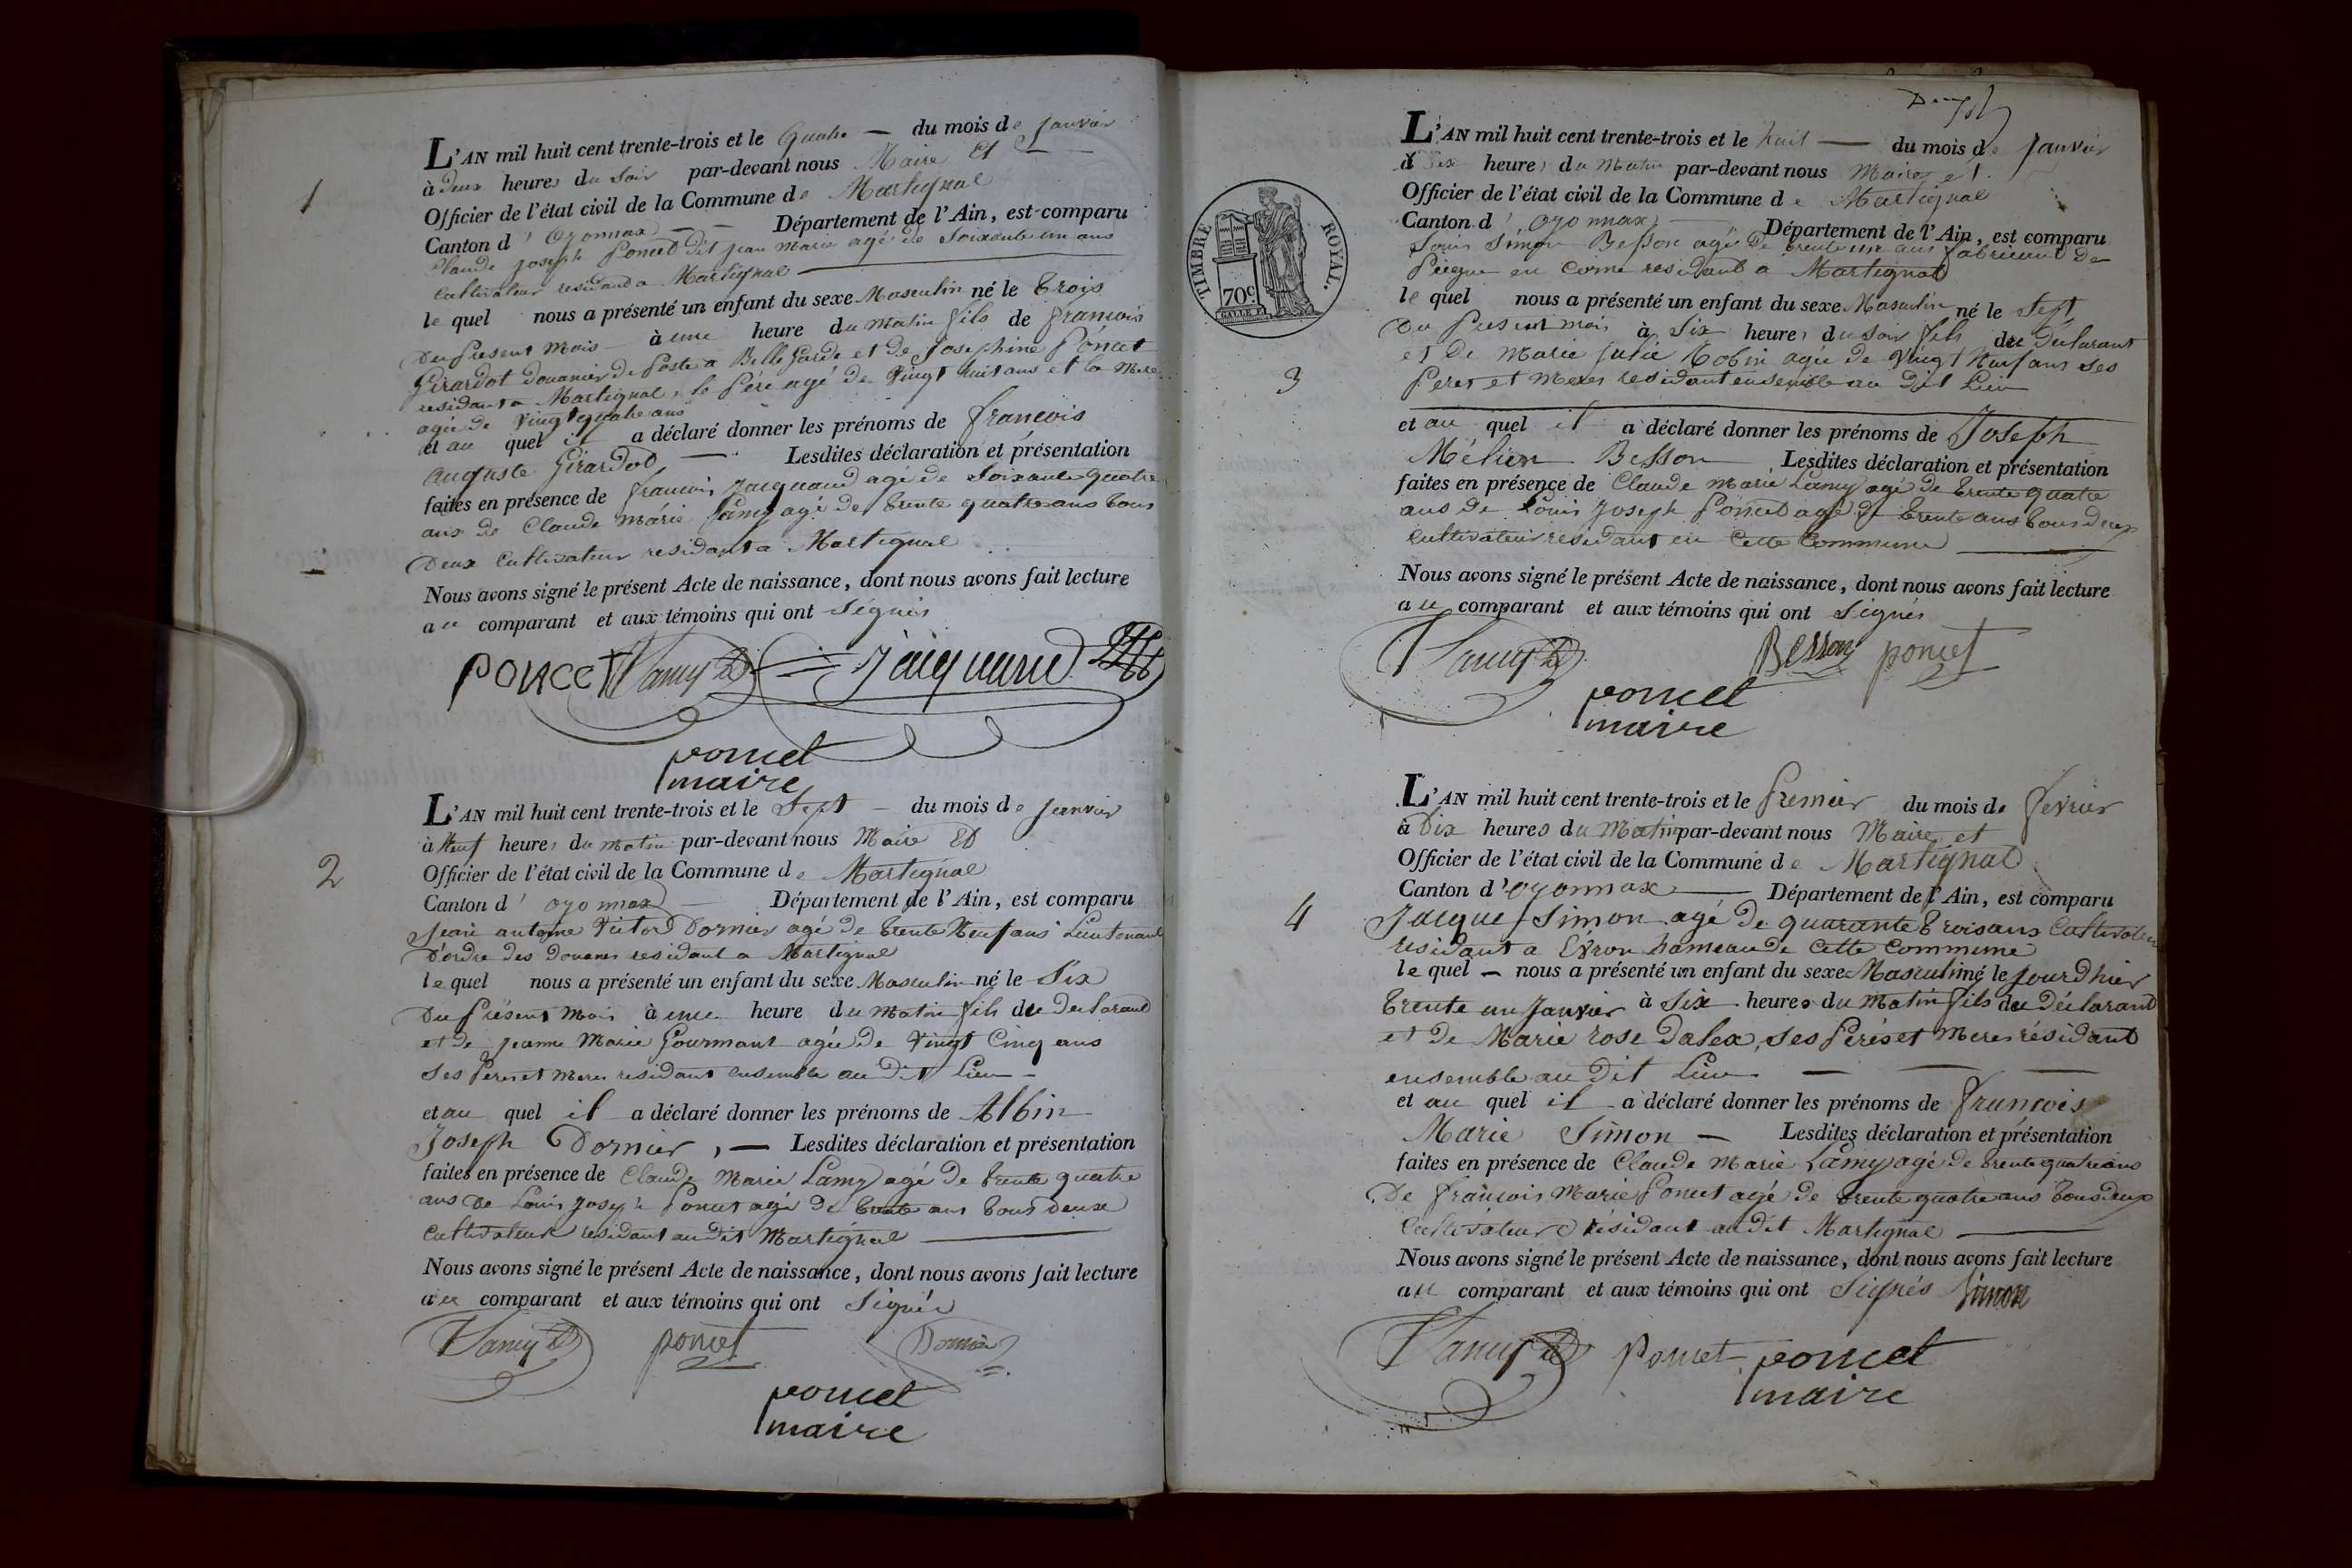 1
L'AN mil huit cent trente-trois et le Quatre — du mois de Janvier
à deux heures du Soir par-devant nous Maire Et
Officier de l'état civil de la Commune de Martignat
Canton d' Oyonnax — Département de l'Ain, est comparu
Claude joseph Poncet dit jean Marie agé de Soixante un ans
Cultivateur residant a Martignat
le quel nous a présenté un enfant du sexe Masculin né le trois
Du présent Mois à une heure du Matin fils de francois
Girardot douanier de Poste a Bellegarde et de Josephine Poncet
residant a Martignat, le Pére agé de Vingt huit ans et la Mere
agée de Vingt quatre ans
et au quel il a déclaré donner les prénoms de françois
auguste Girardot, — Lesdites déclaration et présentation
faites en présence de francois Jacquand agé de Soixante quatre
ans de Claude Marie Lamy agé de trente quatre ans tous
Deux Cultivateur residant a Martignat
Nous avons signé le présent Acte de naissance, dont nous avons fait lecture
au comparant et aux témoins qui ont Signés
Poncet Lamy Jacquand
poncet
maire
2
L'AN mil huit cent trente-trois et le Sept — du mois de Janvier
à Neuf heures du Matin par-devant nous Maire Et
Officier de l'état civil de la Commune de Martignat
Canton d' oyonnax — Département de l'Ain, est comparu
Jean antoine Victor Dornier agé de trente Neuf ans Lieutenant
D'ordre des Douanes residant a Martignat
le quel nous a présenté un enfant du sexe Masculin né le Six
Du Présent Mois à une heure du Matin fils du Declarant
et de jeanne Marie Gourmant agée de Vingt Cinq ans
Ses Peres et Meres residant ensemble au Dit Lieu —
et au quel il a déclaré donner les prénoms de Albin
Joseph Dornier, — Lesdites déclaration et présentation
faites en présence de Claude Marie Lamy agé de trente quatre
ans De Louis Joseph Poncet agé de trente ans tous Deux
Cultivateur residant au dit Martignat
Nous avons signé le présent Acte de naissance, dont nous avons fait lecture
au comparant et aux témoins qui ont Signés
Lamy poncet Dornier
poncet
maire
TIMBRE ROYAL.
70c.
3
L'AN mil huit cent trente-trois et le huit — du mois de Janvier
à Dix heures du Matin par-devant nous Maire et
Officier de l'état civil de la Commune de Martignat
Canton d' oyonnax — Département de l'Ain, est comparu
Louis Simon Besson agé De trente un ans fabricant De
Peigne en Corne residant a Martignat
le quel nous a présenté un enfant du sexe Masculin né le Sept
Du Present Mois à Six heures du Soir fils du Déclarant
et De Marie Julie Robin agée de Vingt Neuf ans Ses
Peres et Meres residant ensemble au Dit Lieu
et au quel il a déclaré donner les prénoms de Joseph
Mélien Besson Lesdites déclaration et présentation
faites en présence de Claude Marie Lamy agé de trente quatre
ans De Louis Joseph Poncet agé de trente ans tous Deux
Cultivateur residant en Cette Commune
Nous avons signé le présent Acte de naissance, dont nous avons fait lecture
au comparant et aux témoins qui ont Signés
Lamy Besson poncet
poncet
maire
4
L'AN mil huit cent trente-trois et le Premier du mois de fevrier
à Dix heures du Matin par-devant nous Maire et
Officier de l'état civil de la Commune de Martignat
Canton d'oyonnax — Département de l'Ain, est comparu
Jacque Simon agé de quarante trois ans Cultivateur
residant a Evron hameau de Cette Commune
le quel — nous a présenté un enfant du sexe Masculin né le jour Dhier
trente un Janvier à Six heures du Matin fils du Déclarant
et De Marie rose Dalex, Ses Peres et Meres résidant
ensemble au Dit Lieu — — —
et au quel il a déclaré donner les prénoms de francois
Marie Simon — Lesdites déclaration et présentation
faites en présence de Claude Marie Lamy agé de trente quatre ans
De francois Marie Poncet agé de trente quatre ans tous deux
Cultivateur résidant au dit Martignat
Nous avons signé le présent Acte de naissance, dont nous avons fait lecture
au comparant et aux témoins qui ont Signés Simon
Lamy Poncet poncet
maire